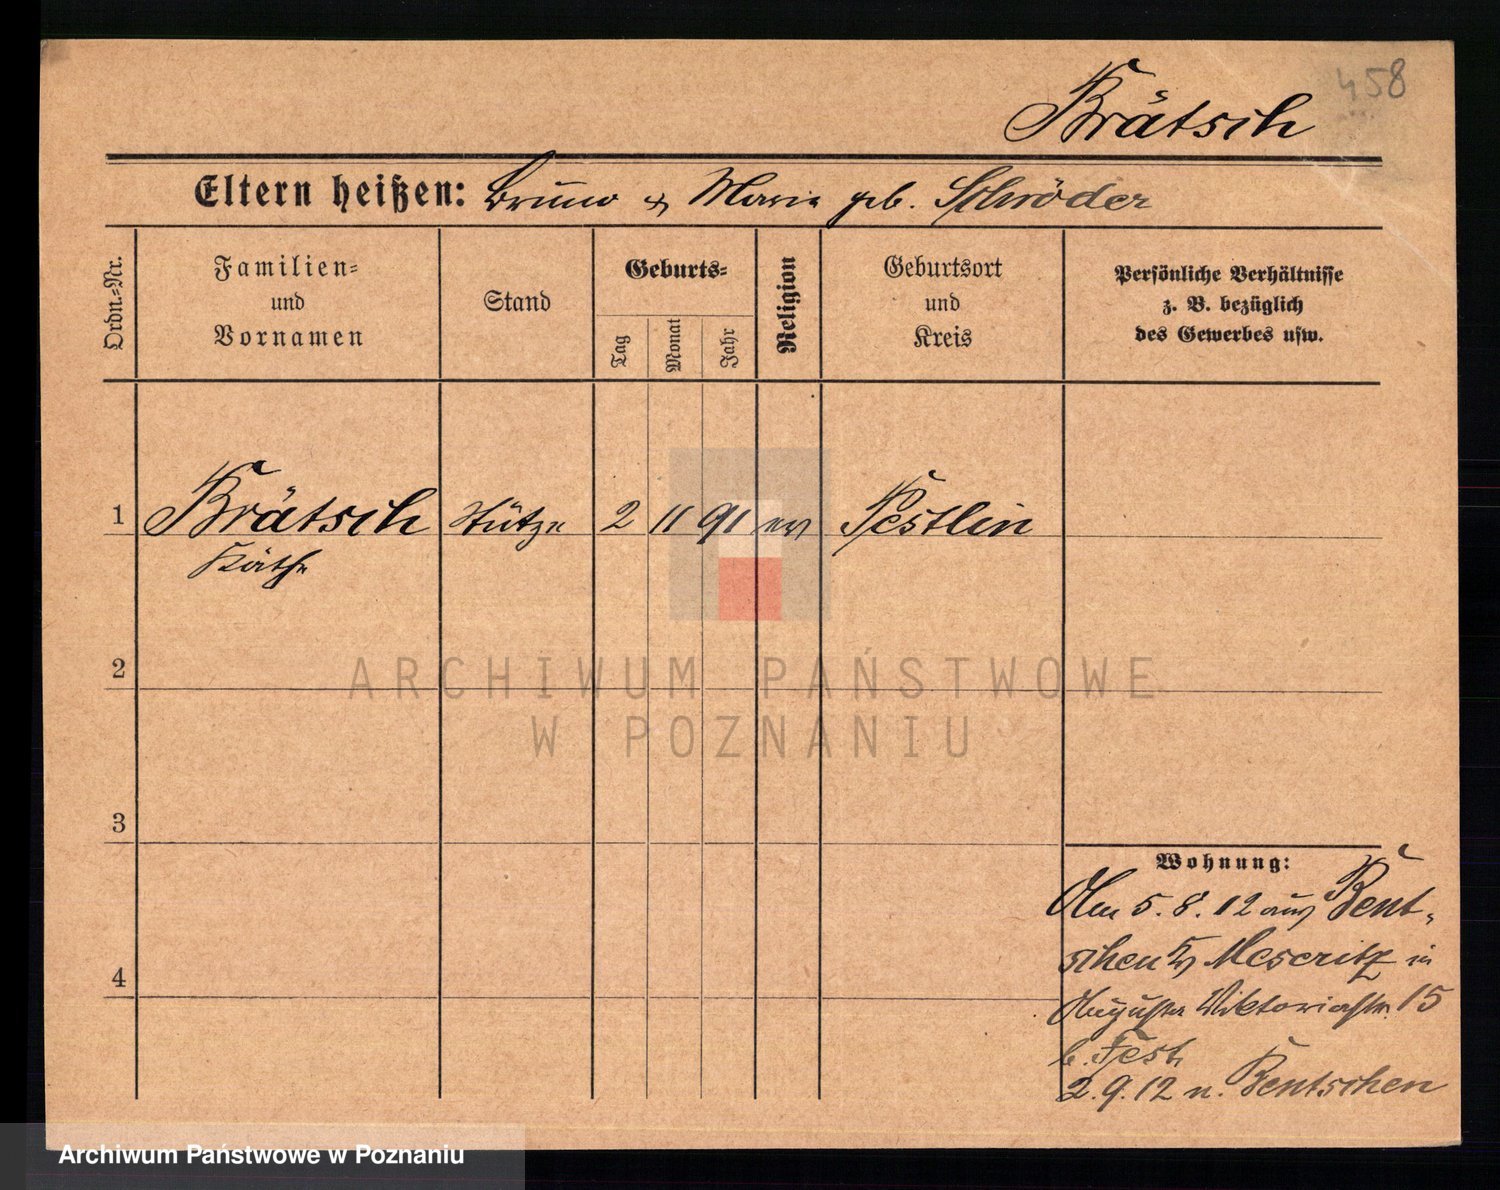 458
Brätsch
Eltern heißen: Bruno & Marie geb. Schröder
Ordn.-Nr.
Familien-
und
Vornamen
Stand
Geburts-
Tag
Monat
Jahr
Religion
Geburtsort
und
Kreis
Persönliche Verhältnisse
z. B. bezüglich
des Gewerbes usw.
1 Brätsch Stütze 2 11 91 ev Pestlin
Käthe
2
ARCHIWUM PAŃSTWOWE
W POZNANIU
3
Wohnung:
Am 5.8.12 aus Bent-
schen Kr Meseritz in
4
Augusta Viktoriastr. 15
b. Fest
2.9.12 n. Bentschen
Archiwum Państwowe w Poznaniu